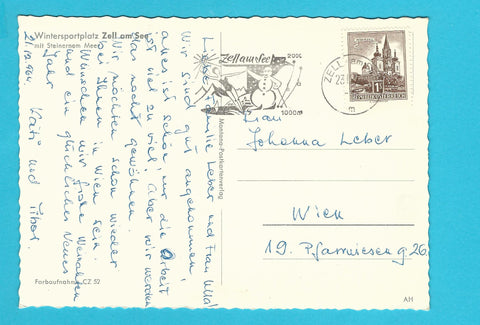 Wintersportplatz Zell am See
mit Steinernem Meer
21.12.1964.
Liebe Familie Leber und Frau
Wir sind gut angekommen,
alles ist schön, nur die Arbeit
ist viel zu viel! Aber wir werden
das noch gewöhnen.
Wir möchten schon wieder
bei Ihnen in Wien sein.
Wünschen wir frohe Weinahten
und ein glückliches Neues
Jahr
Kati und Tibor.
Farbaufnahme CZ 52
Montana-Postkartenverlag
Zell am See
2000
1000m
ZELL am
REPUBLIK ÖSTERREICH
Frau
Johanna Leber
Wien
19. Pfarrwieseng 26
AH